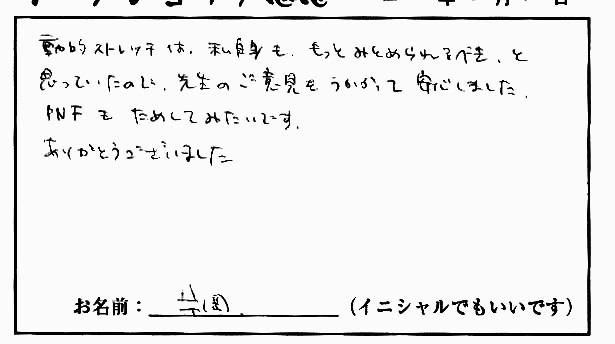 動的ストレッチは、私自身も、もっとみとめられるべき、と
思っていたので、先生のご意見をうかがって安心しました。
PNFもためしてみたいです。
ありがとうございました
お名前： (イニシャルでもいいです)